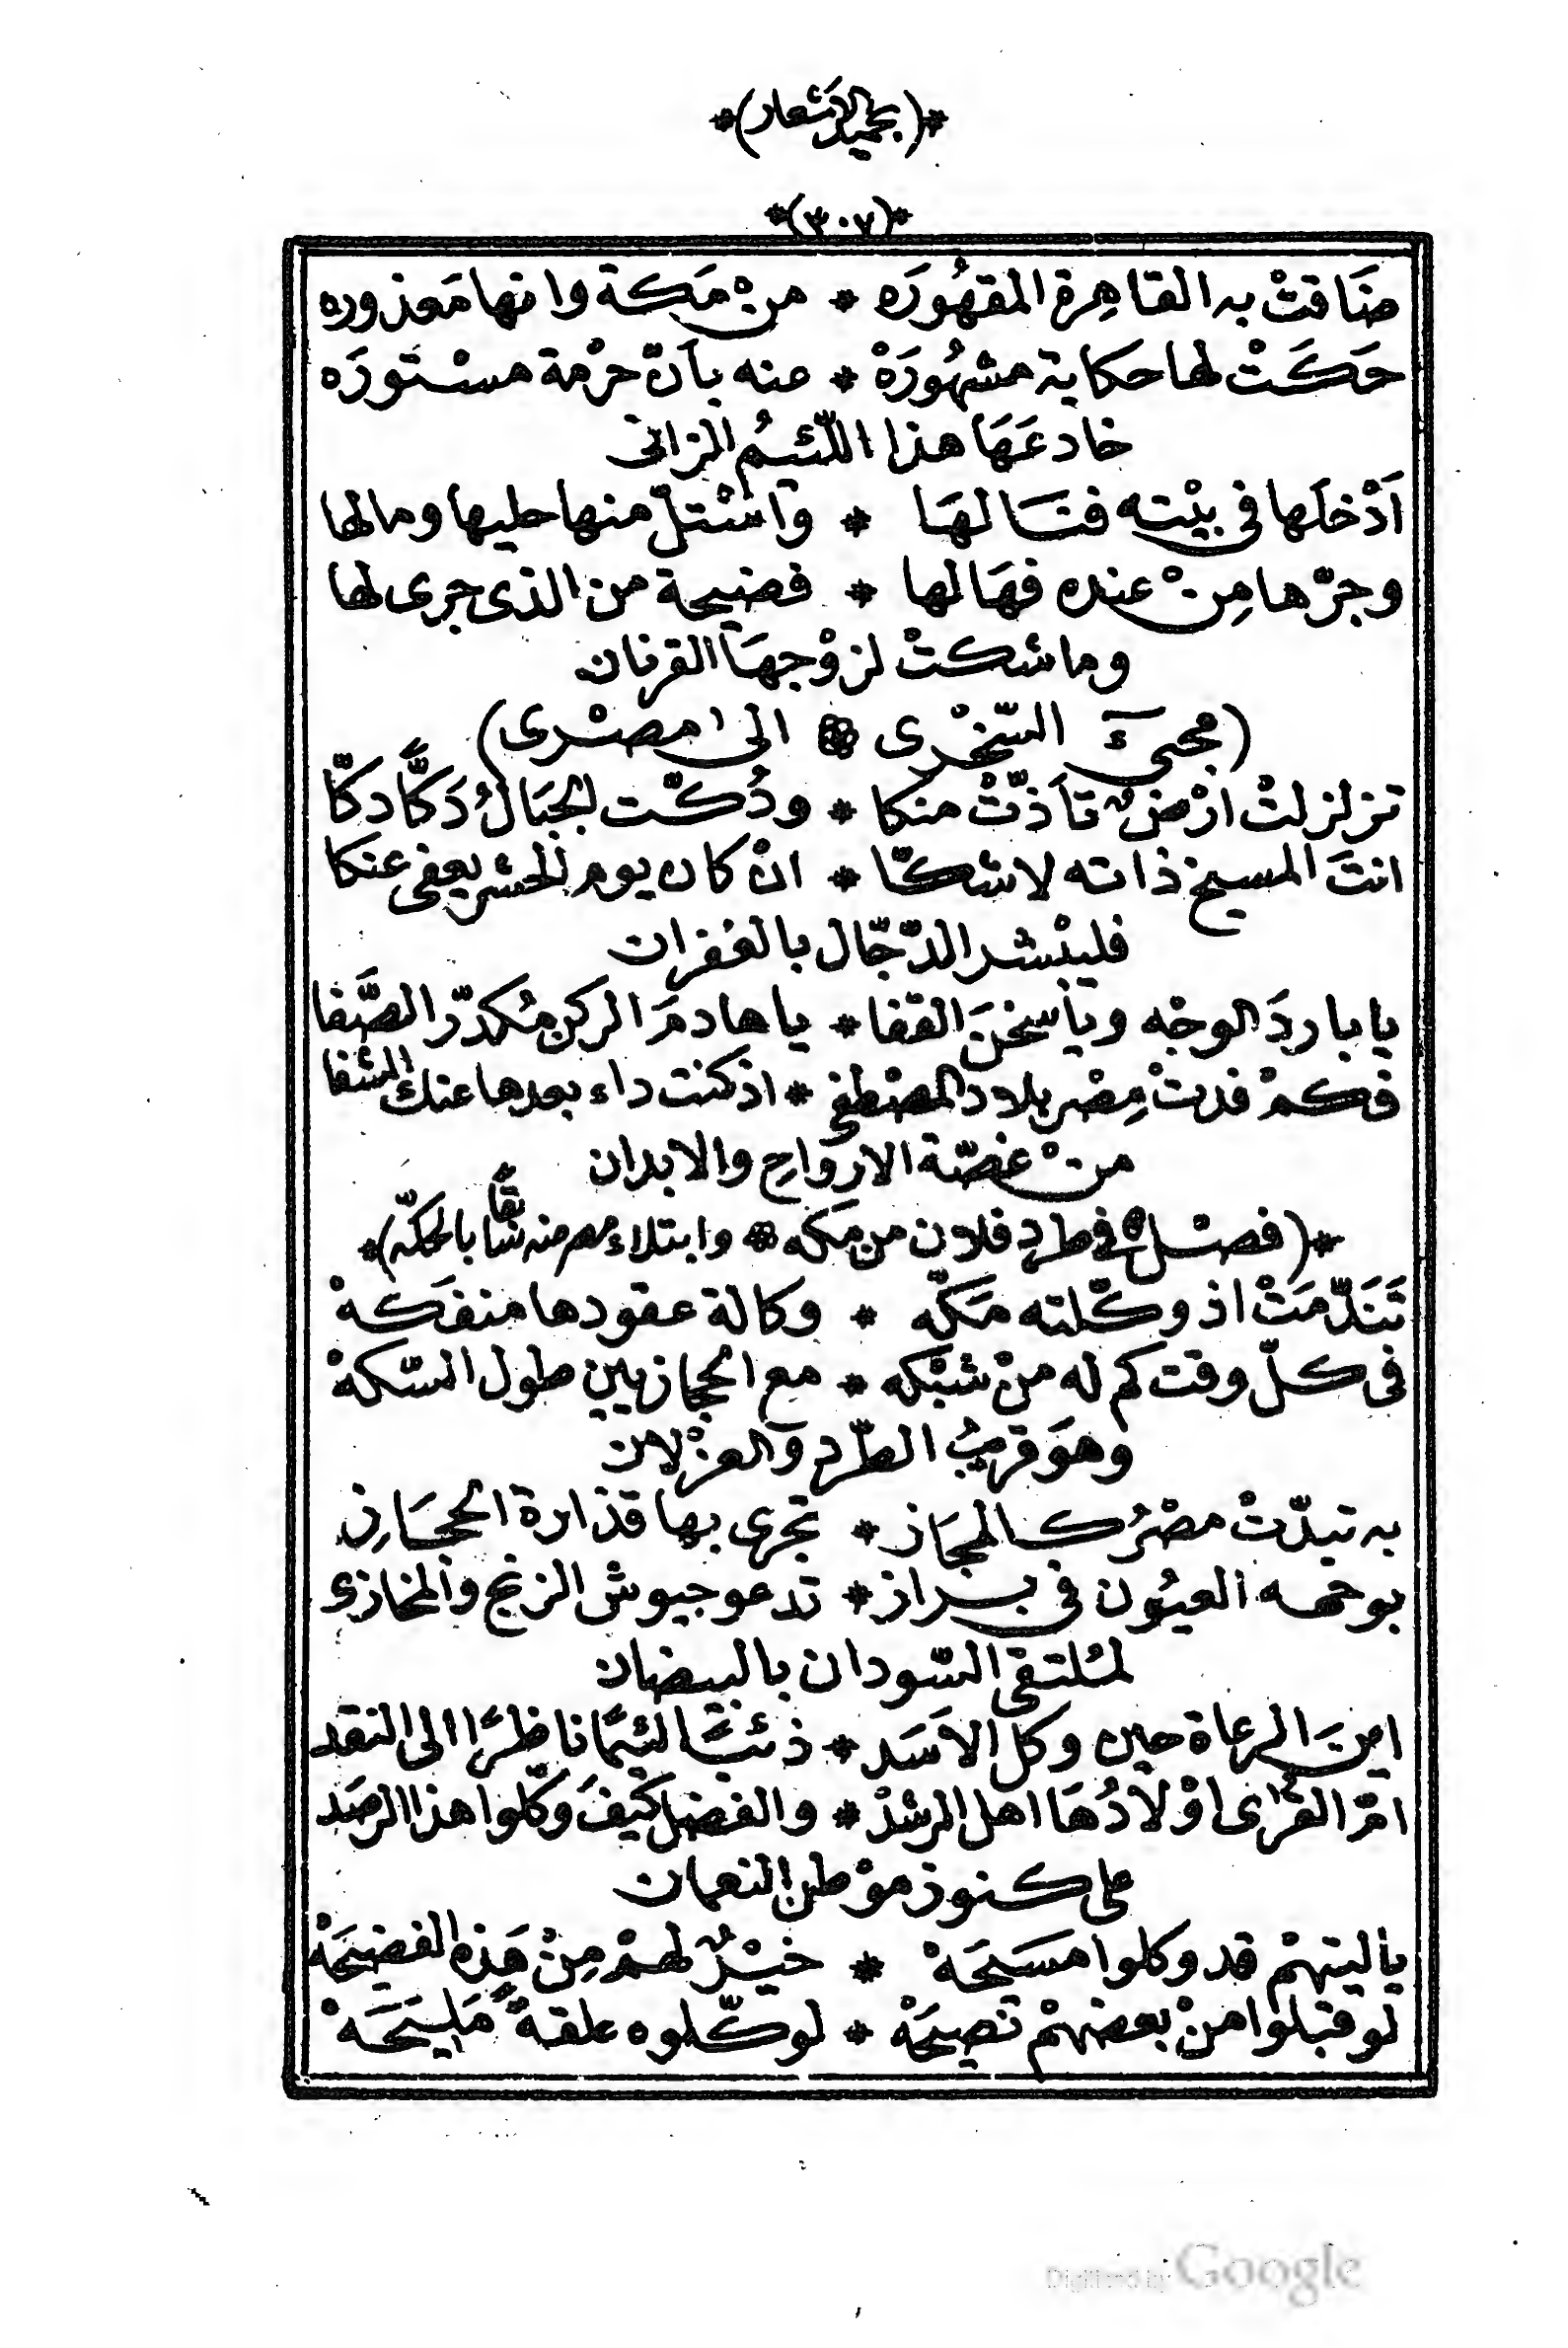 *(بحميد الاشعار)*
*(٣٠٧)*
ضَاقتْ به القاهِرة المقهُورَه * منْ مَكة وانها مَعذوره
حَكَتْ لها حكاية مشهُورَهْ * عنه بأنّ حرْمة مسْتورَه
خادعَهَا هذا اللّئيمُ الزانى
اَدْخلَها فى بيْته فنَالهَا * وَاسْتلّ منها حليها ومالها
وجرّها مِنْ عنده فهَالها * فضيحة من الذى جرى لها
وما شكتْ لزوْجهَا القرنان
(مجىءَ السّخْرى * الى مصْرى)
تزلزلتْ ارْضٌ تأذّتْ منكا * ودُكّت الجبَالُ دَكًّا دكّا
انتَ المسيخ ذاته لاشكّا * انْ كان يوم الحشر يعفى عنكا
فليبْشر الدّجّال بالغفران
يا باردَ الوجْه ويا سخنَ القفا * يا هادمَ الركن مُكدّر الصَّفا
فكمْ فدتْ مِصْر بلاد المصْطفى * اذ كنت داء بعدها عنك الشفا
منْ غصّة الارْوَاحِ والابدان
*(فصْلٌ فى طرد فلان من مكه * وابتلاء مصر منه نتنا بالحكّه)*
تَنَدّمَتْ اذ وكّلته مَكّه * وكالة عقودها منفَكهْ
فى كلّ وقت كم له منْ شبْكه * مع الحجازيين طول السّكهْ
وهوَ قريبُ الطّرد والعزْلان
به تبدّتْ مصْرُ كالمجَاز * تجرى بها قذارة الحجَازِ
بوجهه العيُون فى براز * تدعو جيوش الزنج والمخازى
لمُلتقى السّودان بالبيضان
اينَ الرعاة حين وكل الاَسَد * ذئبًا لئيمًا ناظرًا الى النقد
امّ القرٰى اوْلادُهَا اهل الرشدْ * والفضل كيفَ وكّلوا هذا الرصَد
على كنوز موْطن النعمان
ياليتهمْ قد وكلوا مَسَيحَهْ * خيْرٌ لهمْ مِنْ هَذه الفضيحَهْ
لو قبلوا منْ بعضهمْ نصيحَهْ * لوكّلوه علقةً مَليحَهْ
Digitized by Google